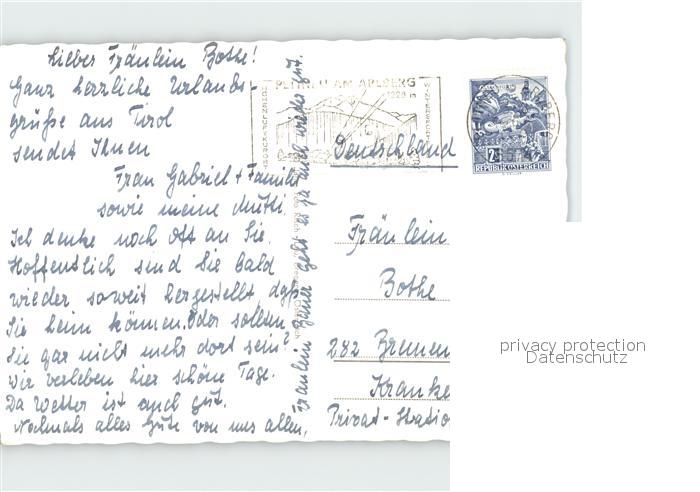 Lieber Fräulein Bothe!
Ganz herzliche Urlaubs-
grüße aus Tirol
sendet Ihnen
Frau Gabriel + Familie
sowie meine Mutti.
Ich denke noch oft an Sie.
Hoffentlich send Sie bald
wieder soweit hergestellt, daß
Sie heim können. Oder sollten
Sie gar nicht mehr dort sein?
Wir verleben hier schöne Tage.
Da Wetter ist auch gut.
Nochmals alles Gute von uns allen,
Fräulein Bauer geht es ja auch wieder gut.
PETTNEU AM ARLBERG
1228 m
2
REPUBLIK ÖSTERREICH
Deutschland
Fräulein
Bothe
282 Bremen
Kranke
Privat-Statio
privacy protection
Datenschutz